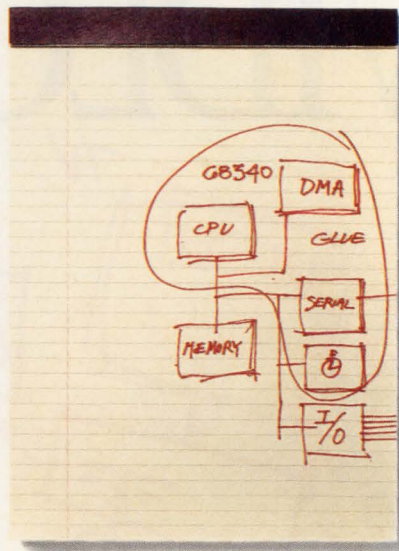 68340
DMA
CPU
GLUE
SERIAL
MEMORY
I/O